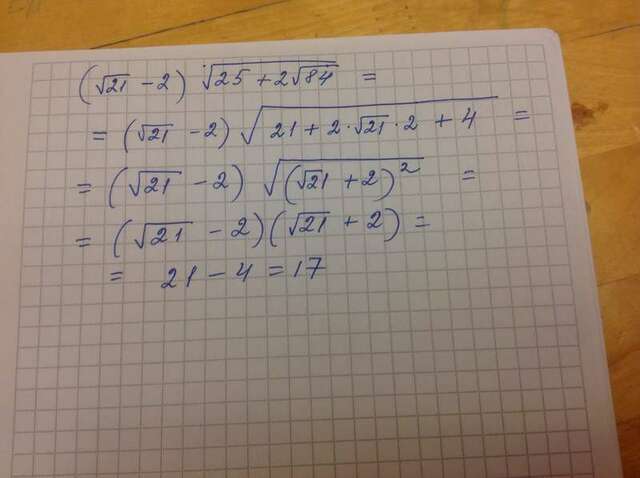 (√21 − 2) √(25 + 2√84) =
= (√21 − 2) √(21 + 2·√21·2 + 4) =
= (√21 − 2) √((√21 + 2)²) =
= (√21 − 2)(√21 + 2) =
= 21 − 4 = 17